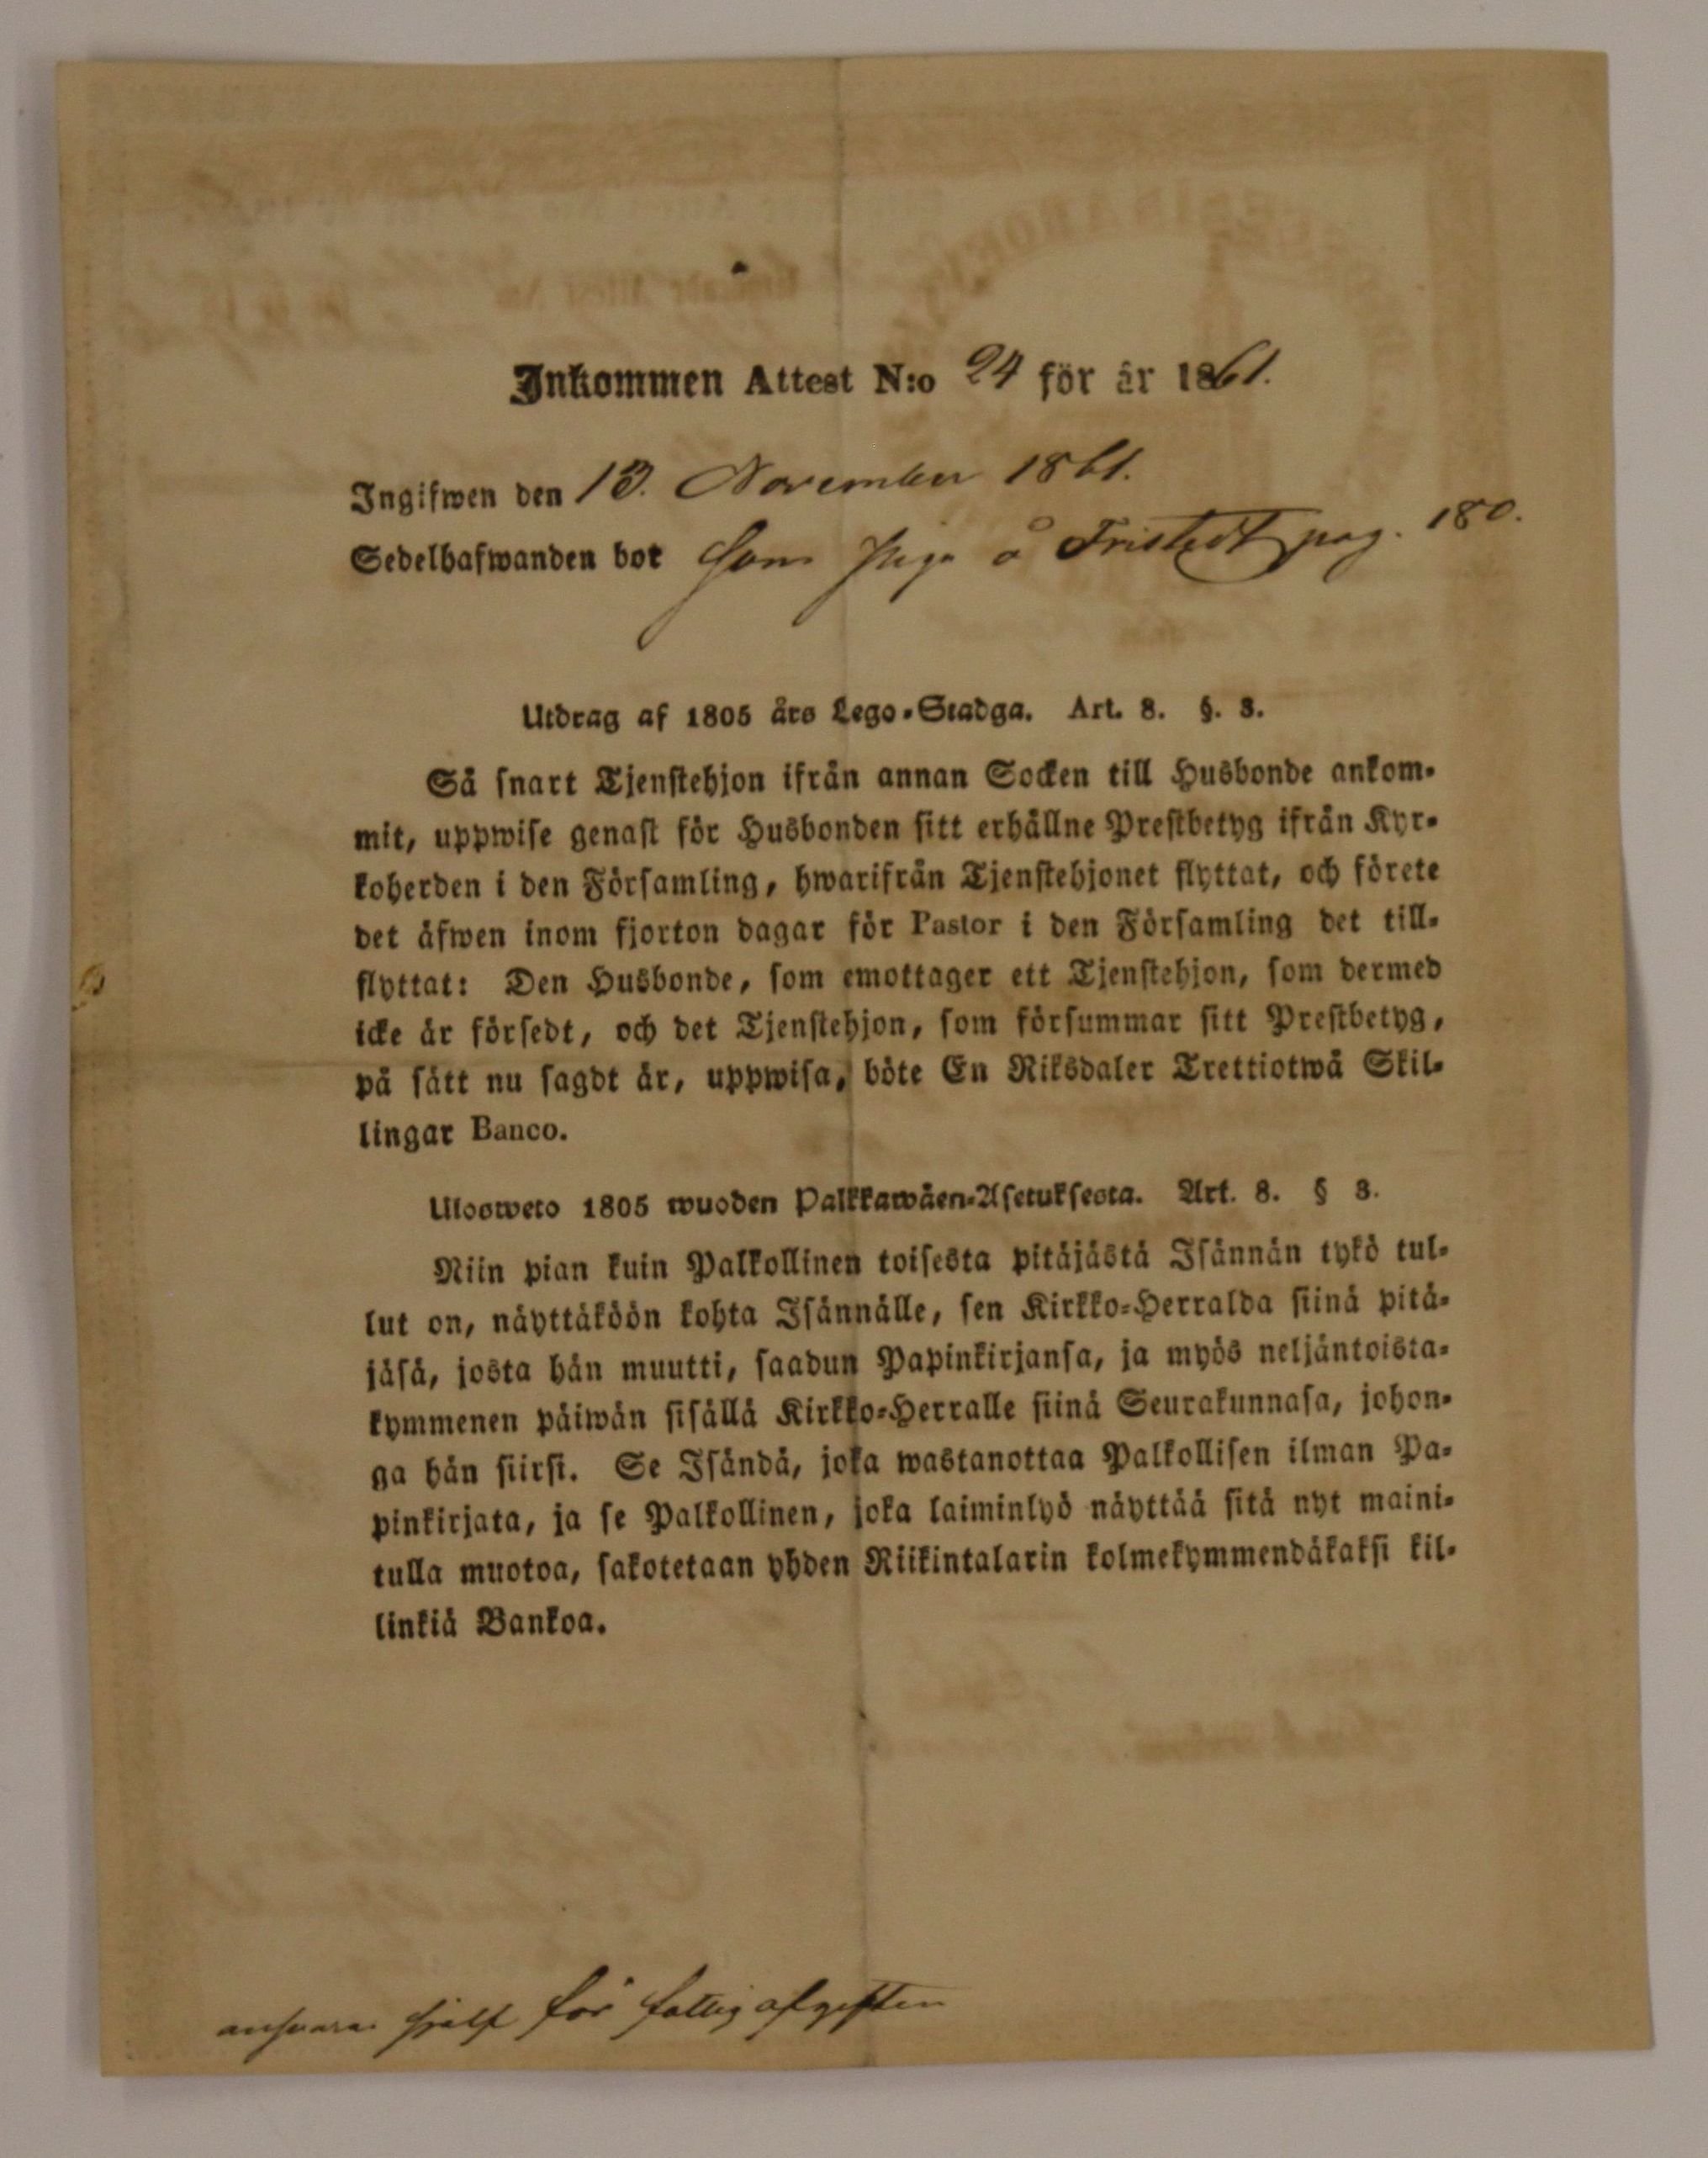 Inkommen Attest N:o 24 för år 1861.
Ingifwen den 13. November 1861.
Sedelhafwanden bor som piga å Fristedt pag. 180.
Utdrag af 1805 års Lego-Stadga. Art. 8. §. 3.
Så snart Tjenstehjon ifrån annan Socken till Husbonde ankom-
mit, uppwise genast för Husbonden sitt erhållne Prestbetyg ifrån Kyr-
koherden i den Församling, hwarifrån Tjenstehjonet flyttat, och förete
det äfwen inom fjorton dagar för Pastor i den Församling det till-
flyttat: Den Husbonde, som emottager ett Tjenstehjon, som dermed
icke är försedt, och det Tjenstehjon, som försummar sitt Prestbetyg,
på sätt nu sagdt är, uppwisa, böte En Riksdaler Trettiotwå Skil-
lingar Banco.
Ulosweto 1805 wuoden Palkkawäen-Asetuksesta. Art. 8. § 3.
Niin pian kuin Palkollinen toisesta pitäjästä Isännän tykö tul-
lut on, näyttäköön kohta Isännälle, sen Kirkko-Herralda siinä pitä-
jäsä, josta hän muutti, saadun Papinkirjansa, ja myös neljäntoista-
kymmenen päiwän sisällä Kirkko-Herralle siinä Seurakunnasa, johon-
ga hän siirsi. Se Isändä, joka wastanottaa Palkollisen ilman Pa-
pinkirjata, ja se Palkollinen, joka laiminlyö näyttää sitä nyt maini-
tulla muotoa, sakotetaan yhden Riikintalarin kolmekymmendäkaksi kil-
linkiä Bankoa.
ansvarar sjelf för fattig afgiften